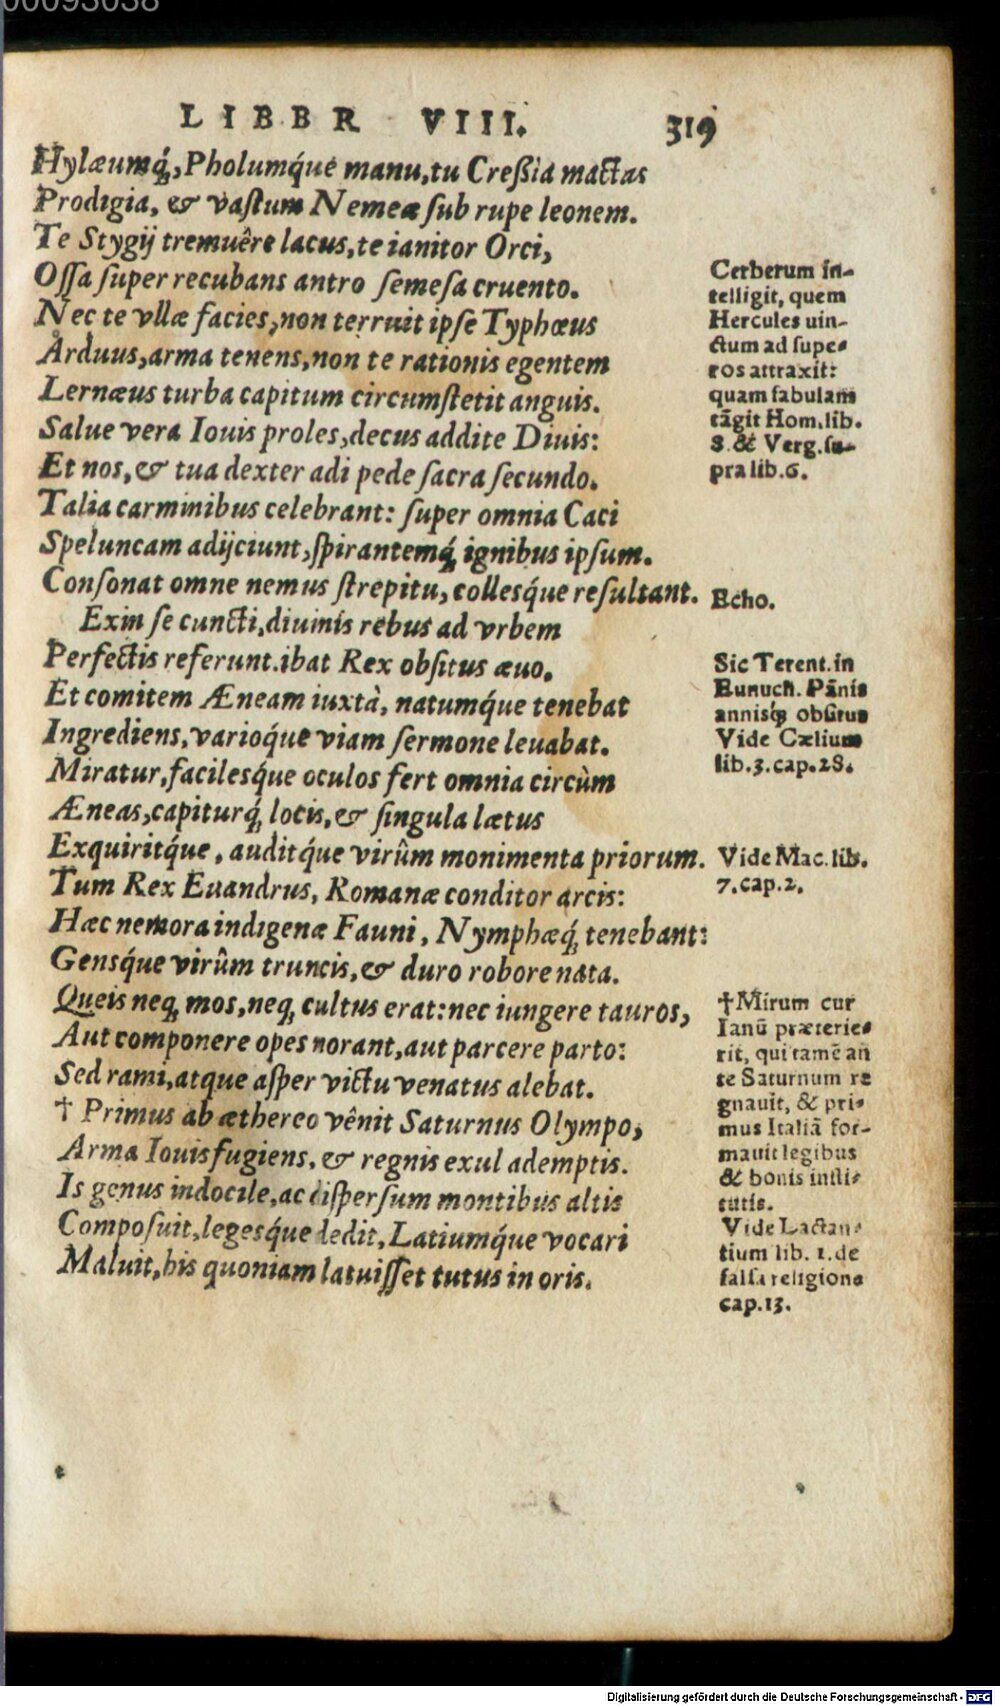 00093038
LIBBR VIII. 319
Hylæumq́;, Pholumq́ue manu, tu Creßia mactas
Prodigia, & vaſtum Nemeæ ſub rupe leonem.
Te Stygij tremuêre lacus, te ianitor Orci,
Oſſa ſuper recubans antro ſemeſa cruento.
Nec te vllæ facies, non terruit ipſe Typhœus
Arduus, arma tenens, non te rationis egentem
Lernæus turba capitum circumſtetit anguis.
Salue vera Iouis proles, decus addite Diuis:
Et nos, & tua dexter adi pede ſacra ſecundo.
Talia carminibus celebrant: ſuper omnia Caci
Speluncam adijciunt, ſpirantemq́; ignibus ipſum.
Conſonat omne nemus ſtrepitu, collesq́ue reſultant.
Exin ſe cuncti, diuinis rebus ad vrbem
Perfectis referunt. ibat Rex obſitus æuo.
Et comitem Æneam iuxtà, natumq́ue tenebat
Ingrediens, varioq́ue viam ſermone leuabat.
Miratur, facilesq́ue oculos fert omnia circùm
Æneas, capiturq́; locis, & ſingula lætus
Exquiritq́ue, auditq́ue virûm monimenta priorum.
Tum Rex Euandrus, Romanæ conditor arcis:
Hæc nemora indigenæ Fauni, Nymphæq́; tenebant:
Gensq́ue virûm truncis, & duro robore nata.
Queis neq; mos, neq; cultus erat: nec iungere tauros,
Aut componere opes norant, aut parcere parto:
Sed rami, atque aſper victu venatus alebat.
† Primus ab æthereo vênit Saturnus Olympo,
Arma Iouis fugiens, & regnis exul ademptis.
Is genus indocile, ac diſperſum montibus altis
Compoſuit, legesq́ue dedit, Latiumq́ue vocari
Maluit, his quoniam latuiſſet tutus in oris.
Cerberum in-
telligit, quem
Hercules uin-
ctum ad ſupe-
ros attraxit:
quam fabulam
tãgit Hom. lib.
8. & Verg. ſu-
pra lib. 6.
Echo.
Sic Terent. in
Eunuch. Pãnis
annisq́; obſitus
Vide Cælium
lib. 3. cap. 28.
Vide Mac. lib.
7. cap. 2.
†Mirum cur
Ianũ præterie-
rit, qui tamẽ an
te Saturnum re
gnauit, & pri-
mus Italiã for-
mauit legibus
& bonis inſti-
tutis.
Vide Lactan-
tium lib. 1. de
falſa religione
cap. 13.
Digitalisierung gefördert durch die Deutsche Forschungsgemeinschaft - DFG